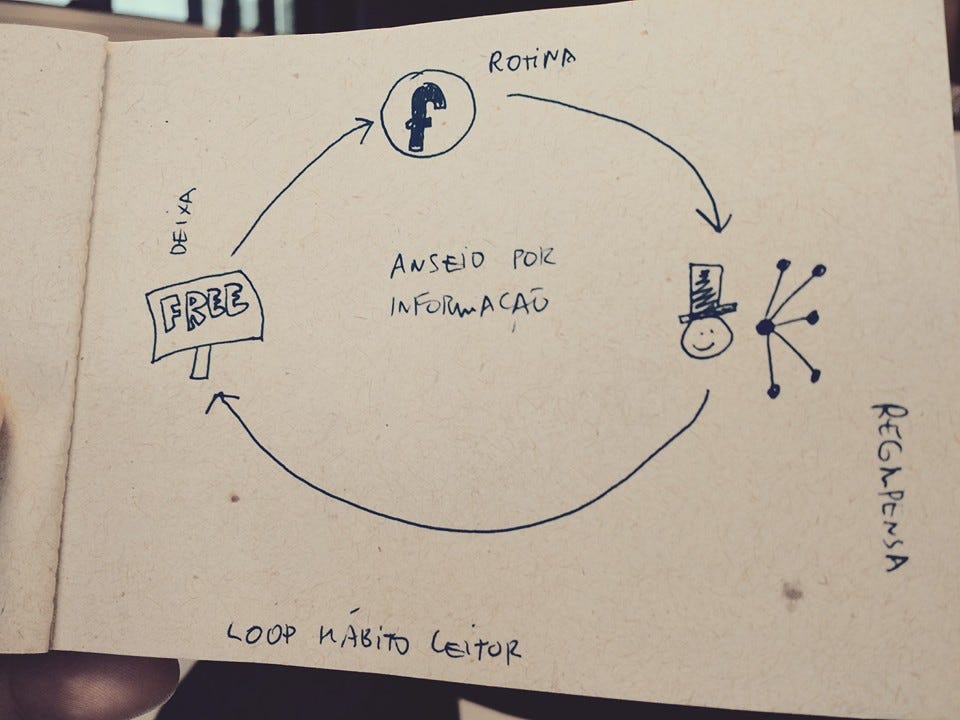 ROTINA
f
DEIXA
FREE
ANSEIO POR
INFORMAÇÃO
RECOMPENSA
LOOP HÁBITO LEITOR